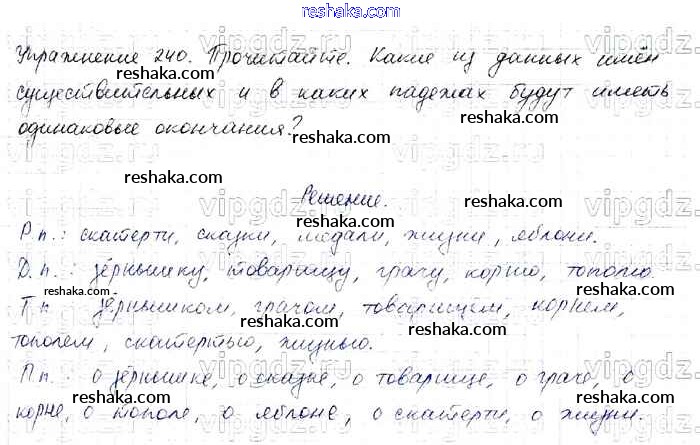 reshaka.com
Упражнение 240. Прочитайте. Какие из данных имён
reshaka.com
существительных и в каких падежах будут иметь
одинаковые окончания?
reshaka.com
reshaka.com
Решение.
reshaka.com
Р.п.: скатерти, сказки, медали, жизни, яблони.
Д.п.: зёрнышку, товарищу, грачу, корню, тополю.
reshaka.com
reshaka.com
Т.п зёрнышком, грачом, товарищем, корнем,
тополем, скатертью, жизнью.
reshaka.com
П.п.: о зёрнышке, о сказке, о товарище, о граче, о
reshaka.com
корне, о тополе, о яблоне, о скатерти, о жизни.
reshaka.com